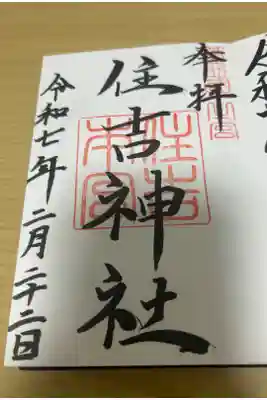 奉拝
住吉神社
住吉
本宮
令和七年二月二十二日